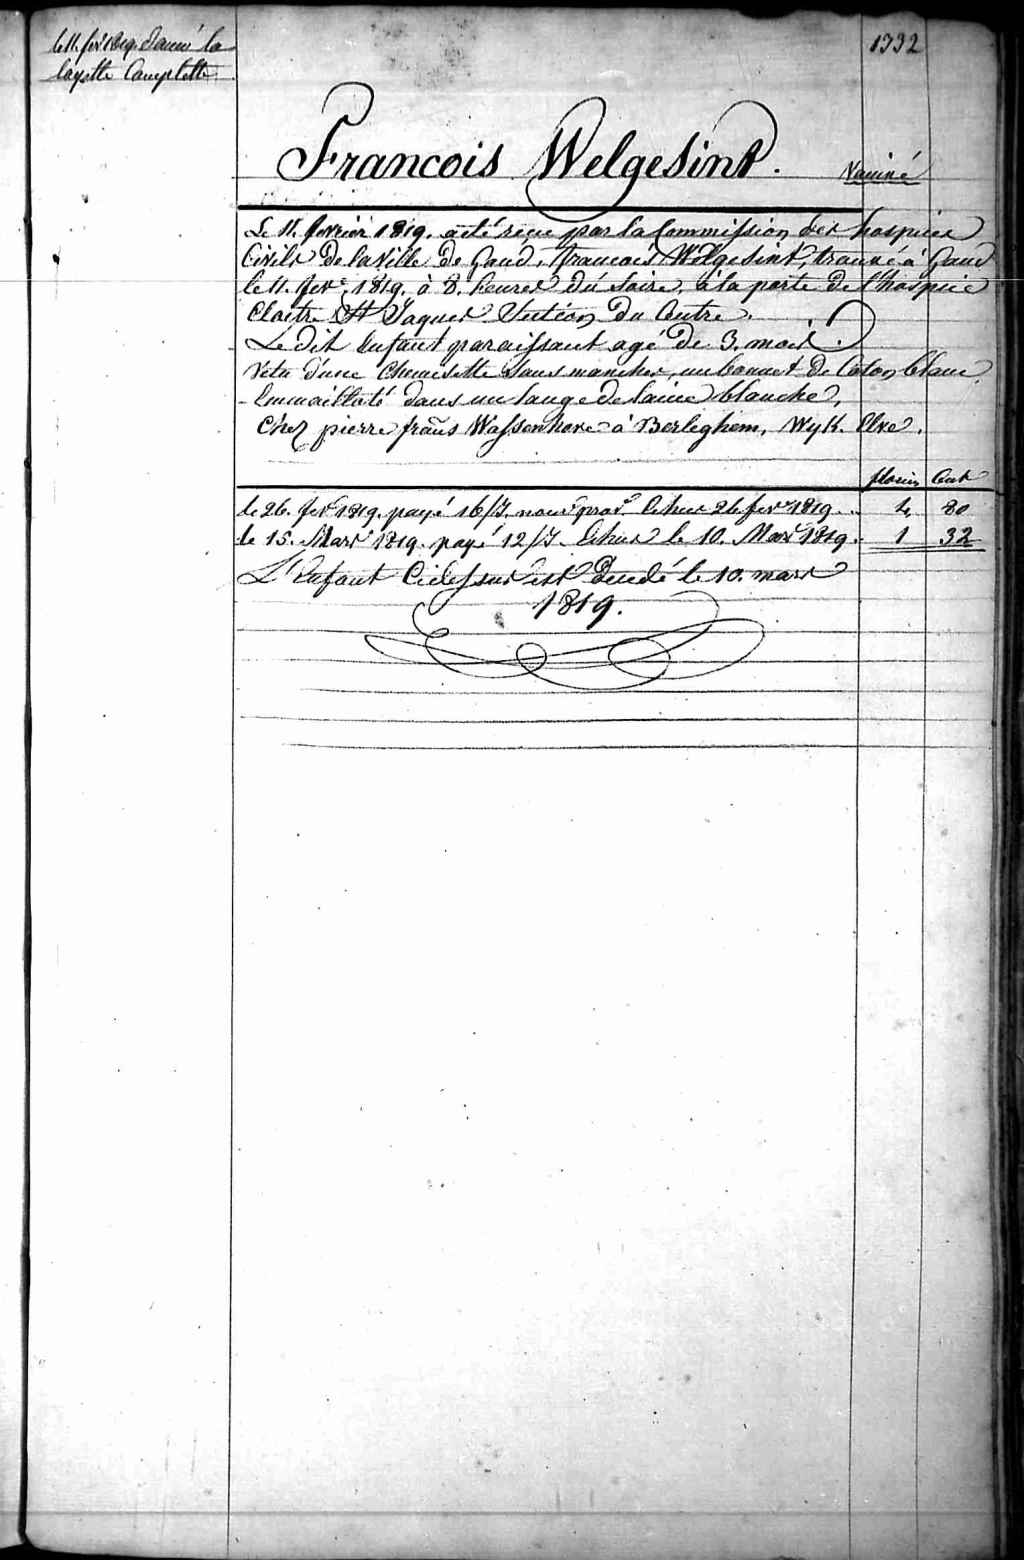 le 11. fev 1819. donné la
layette Complette.
1332
Francois Welgesint.
Vacciné
Le 11. fevrier 1819. a été reçue par la Commission des hospices
Civils de la Ville de Gand, francois Welgesint, trouvé à Gand
le 11. fevr. 1819. à 8. heures du Soire, à la porte de l'hospice
Cloitre St Jaques Section du Centre.
Le dit Enfant paraissant agé de 3. mois.
Vetu d'une Chemisette Sans manches, un bonnet de Coton blanc
Emmailloté dans un lange de laine blanche,
Chez pierre frans Wassenhove à Berleghem, Wyk.
florins Cent
le 26. fevr 1819. payé 16/J. nour prov. Echus 26 fevr 1819. .. 4, 80
le 15. Mars 1819. payé 12/J. Echus le 10. Mars 1819. 1 32
L'Enfant Cidessus est Decedé le 10. mars
1819.